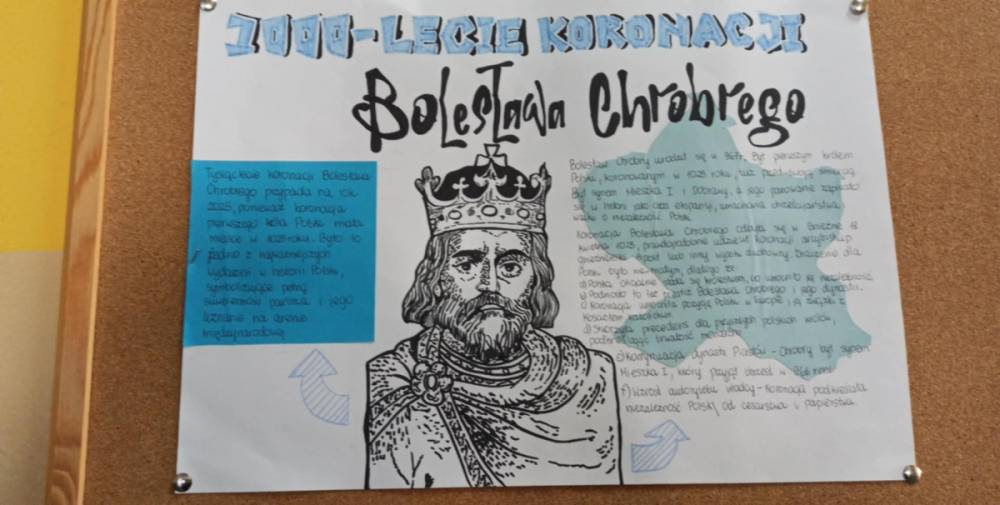 1000-LECIE KORONACJI
Bolesława Chrobrego
Tysiąclecie koronacji Bolesława
Chrobrego przypada na rok
2025, ponieważ koronacja
pierwszego króla Polski miała
miejsce w 1025 roku. Było to
jedno z najważniejszych
wydarzeń w historii Polski,
symbolizujące pełną
suwerenność państwa i jego
uznanie na arenie
międzynarodowej
Bolesław Chrobry urodził się w 967r. Był pierwszym królem
Polski, koronowanym w 1025 roku, tuż przed swoją śmiercią.
Był synem Mieszka I i Dobrawy, a jego panowanie zapisało
się w historii jako czas ekspansji, umacniania chrześcijaństwa,
walki o niezależność Polski.
Koronacja Bolesława Chrobrego odbyła się w Gnieźnie 18
kwietnia 1025, prawdopodobnie udzielał koronacji arcybiskup
gnieźnieński lub inny wysoki duchowny. Znaczenie dla
Polski było dlatego że:
a) Polska oficjalnie stała się królestwem, co umocniło jej niezależność
b) Podniosło to też prestiż Bolesława Chrobrego i jego dynastii.
c) Koronacja umocniła pozycję Polski w Europie i jej związki z
Kościołem katolickim.
d) Stworzyła precedens dla przyszłych polskich królów,
trwałość monarchii.
e) Kontynuacja dynastii Piastów - Chrobry był synem
Mieszka I, który przyjął chrzest w 966 roku
f) Wzrost autorytetu władcy - Koronacja podkreślała
niezależność Polski od cesarstwa i papiestwa